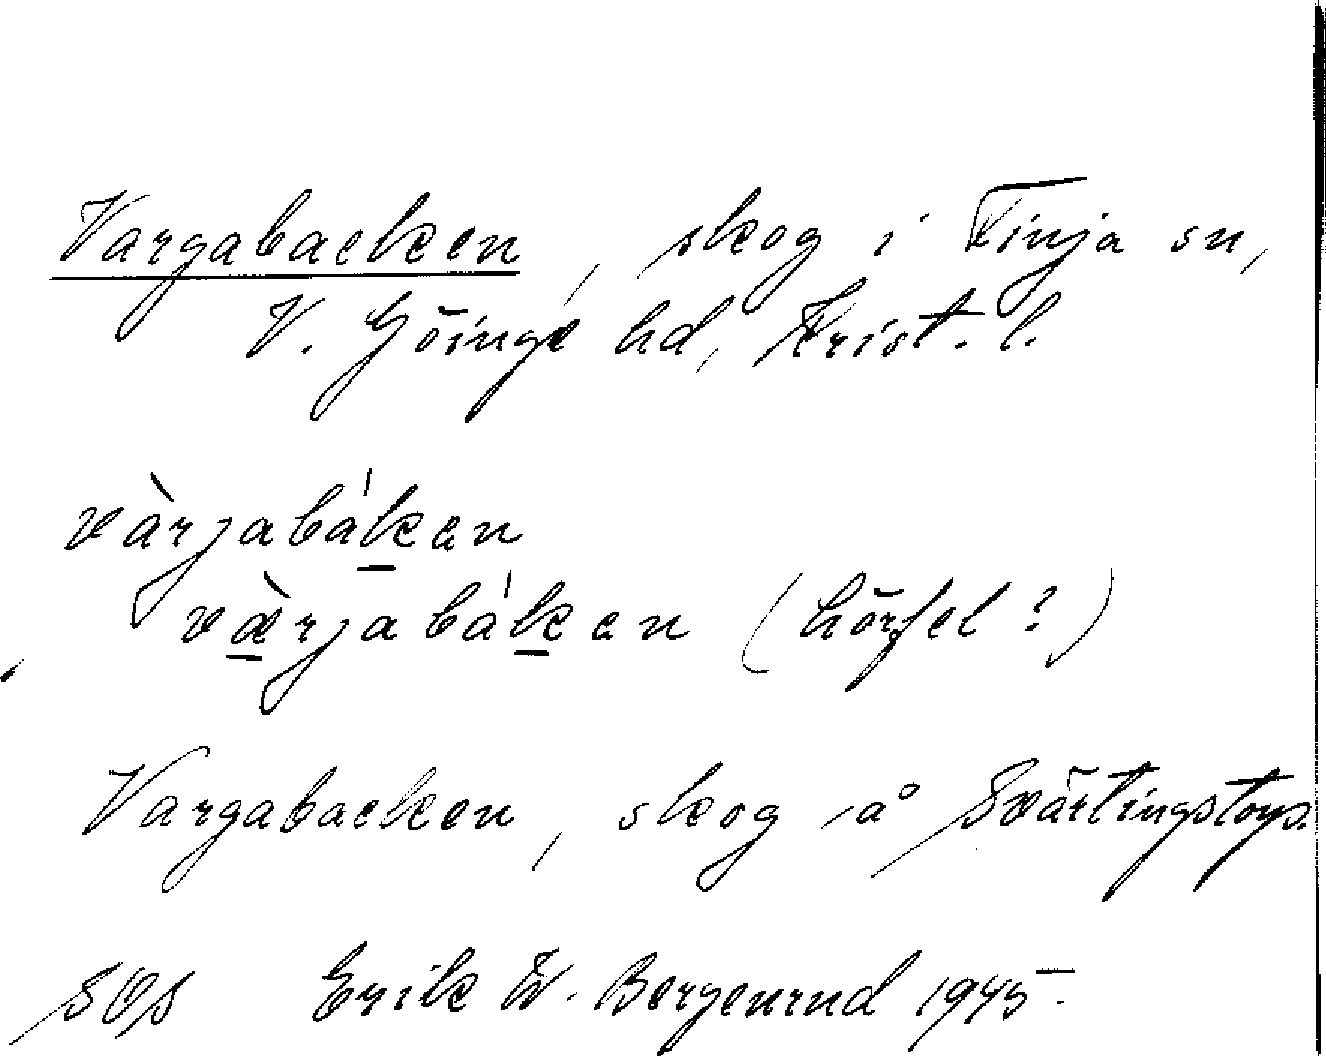 Vargabacken, skog i Finja sn,
V. Göinge hd, Krist. l.
vàrjabák̠en
væ̠̀rjabák̠en (hörfel?)
Vargabacken, skog å Svärtingstorps.
SOS Erik W. Bergenrud 1945.